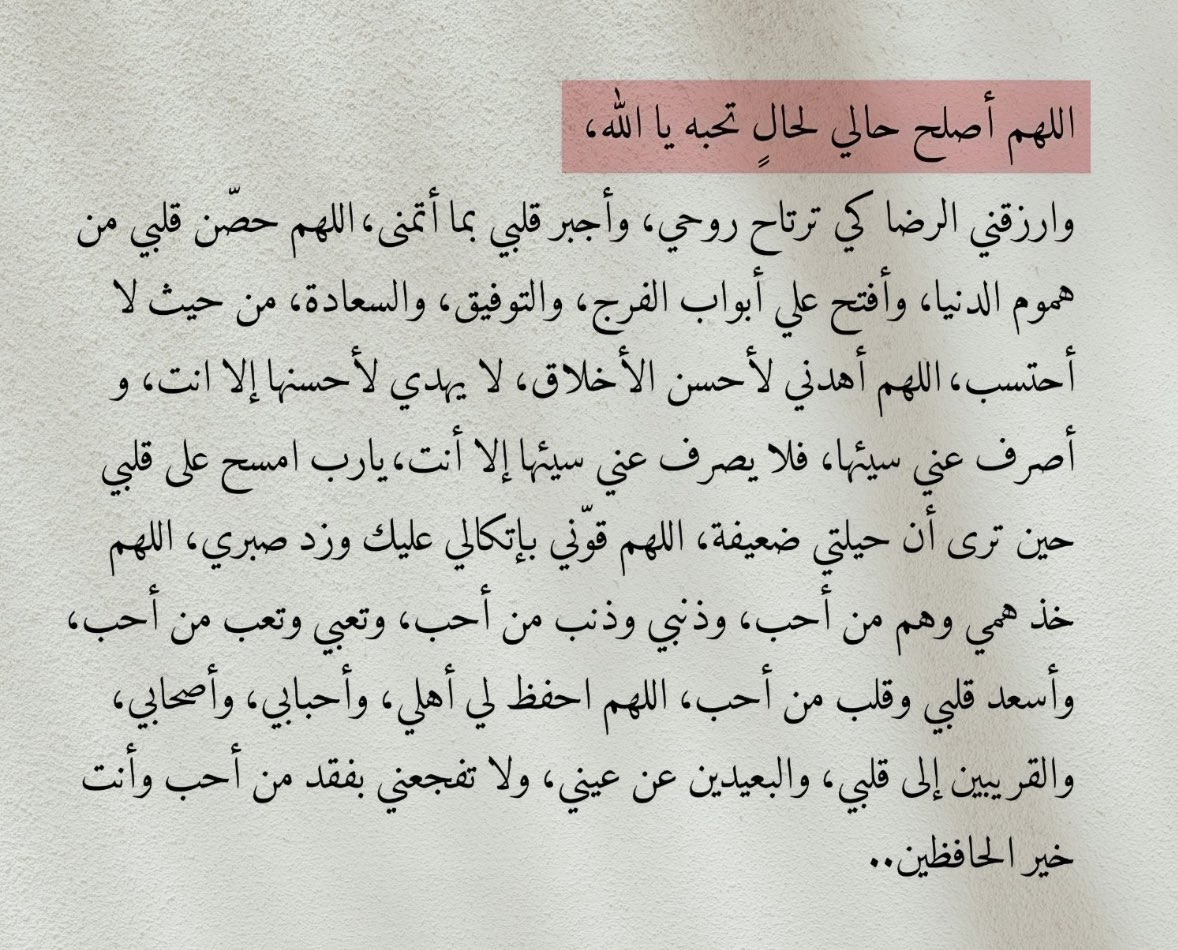 اللهم أصلح حالي لحالٍ تحبه يا الله،
وارزقني الرضا كي ترتاح روحي، وأجبر قلبي بما أتمنى، اللهم حصّن قلبي من
هموم الدنيا، وأفتح علي أبواب الفرج، والتوفيق، والسعادة، من حيث لا
أحتسب، اللهم أهدني لأحسن الأخلاق، لا يهدي لأحسنها إلا انت، و
أصرف عني سيئها، فلا يصرف عني سيئها إلا أنت، يارب امسح على قلبي
حين ترى أن حيلتي ضعيفة، اللهم قوّني بإتكالي عليك وزد صبري، اللهم
خذ همي وهم من أحب، وذنبي وذنب من أحب، وتعبي وتعب من أحب،
وأسعد قلبي وقلب من أحب، اللهم احفظ لي أهلي، وأحبابي، وأصحابي،
والقريبين إلى قلبي، والبعيدين عن عيني، ولا تفجعني بفقد من أحب وأنت
خير الحافظين..